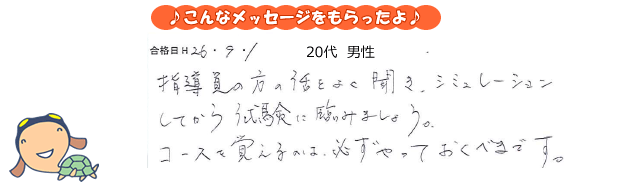 ♪こんなメッセージをもらったよ♪
合格日H26・9・1 20代 男性
指導員の方の話をよく聞き、シミュレーション
してから試験に臨みましょう。
コースを覚えるのは、必ずやっておくべきです。